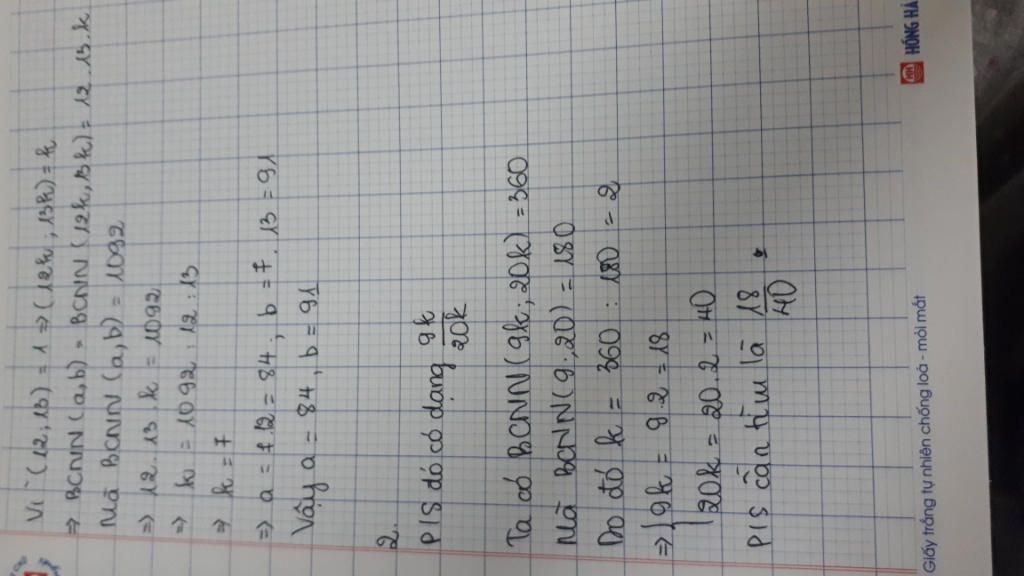 Vì (12,13) = 1 ⇒ (12k, 13k) = k
⇒ BCNN (a,b) = BCNN (12k, 13k) = 12.13.k
Mà BCNN (a,b) = 1092
⇒ 12.13.k = 1092
⇒ k = 1092 : 12 : 13
⇒ k = 7
⇒ a = 7.12 = 84 ; b = 7.13 = 91
Vậy a = 84, b = 91
2.
P/S đó có dạng 9k/20k
Ta có BCNN (9k; 20k) = 360
Mà BCNN (9;20) = 180
Do đó k = 360 : 180 = 2
⇒ { 9k = 9.2 = 18
20k = 20.2 = 40
P/S cần tìm là 18/40
Giấy trắng tự nhiên chống loá - mỏi mắt
HỒNG HÀ